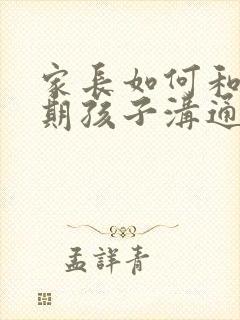 家長如何和
期孩子溝通
孟詳青